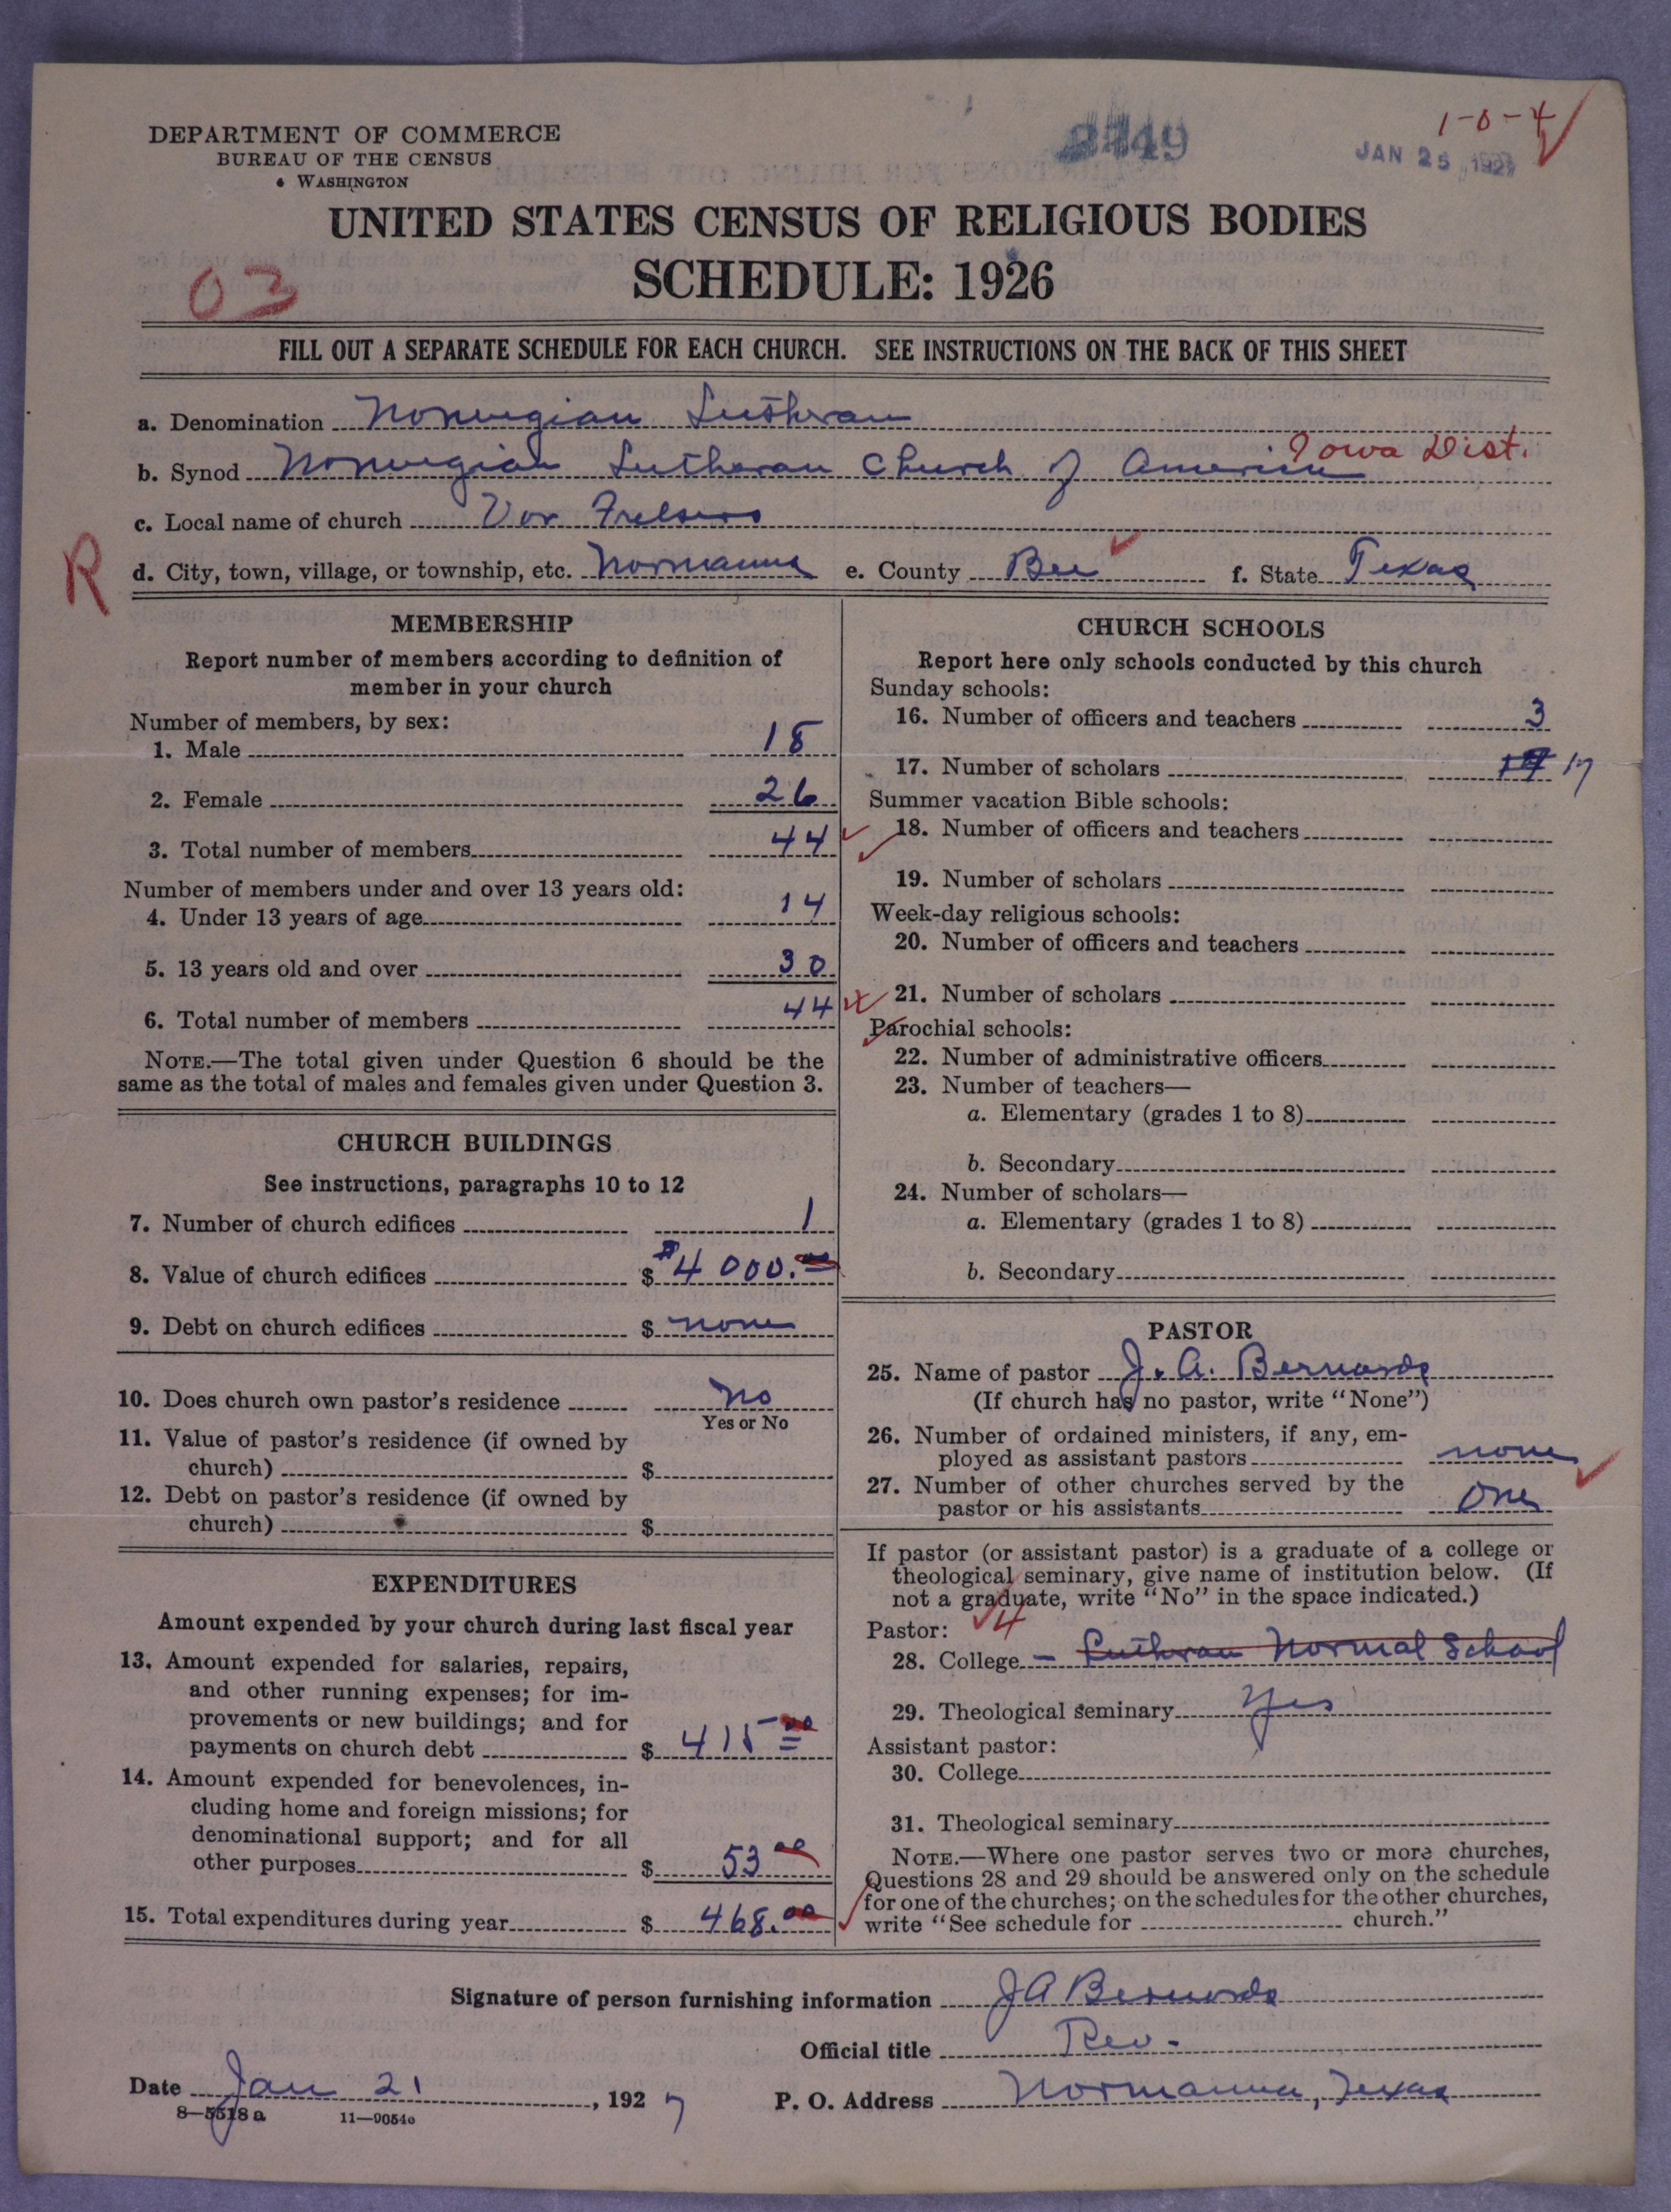 DEPARTMENT OF COMMERCE
BUREAU OF THE CENSUS
WASHINGTON
1-0-4
JAN 25
UNITED STATES CENSUS OF RELIGIOUS BODIES
03
SCHEDULE: 1926
FILL OUT A SEPARATE SCHEDULE FOR EACH CHURCH. SEE INSTRUCTIONS ON THE BACK OF THIS SHEET
a. Denomination Norwegian Lutheran
Iowa Dist.
b. Synod Norwegian Lutheran Church of America
c. Local name of church Vor Frelsers
R
d. City, town, village, or township, etc. Normanna e. County Bee f. State Texas
MEMBERSHIP
Report number of members according to definition of
member in your church
Number of members, by sex:
1. Male 18
2. Female 26
3. Total number of members 44
Number of members under and over 13 years old:
4. Under 13 years of age 14
5. 13 years old and over 30
6. Total number of members 44
NOTE.—The total given under Question 6 should be the
same as the total of males and females given under Question 3.
CHURCH BUILDINGS
See instructions, paragraphs 10 to 12
7. Number of church edifices 1
8. Value of church edifices $ $4000.00
9. Debt on church edifices $ none
10. Does church own pastor's residence no
Yes or No
11. Value of pastor's residence (if owned by
church) $
12. Debt on pastor's residence (if owned by
church) $
EXPENDITURES
Amount expended by your church during last fiscal year
13. Amount expended for salaries, repairs,
and other running expenses; for im-
provements or new buildings; and for
payments on church debt $ 415 00
14. Amount expended for benevolences, in-
cluding home and foreign missions; for
denominational support; and for all
other purposes $ 53 00
15. Total expenditures during year $ 468.00
CHURCH SCHOOLS
Report here only schools conducted by this church
Sunday schools:
16. Number of officers and teachers 3
17. Number of scholars 17
Summer vacation Bible schools:
18. Number of officers and teachers
19. Number of scholars
Week-day religious schools:
20. Number of officers and teachers
21. Number of scholars
Parochial schools:
22. Number of administrative officers
23. Number of teachers—
a. Elementary (grades 1 to 8)
b. Secondary
24. Number of scholars—
a. Elementary (grades 1 to 8)
b. Secondary
PASTOR
25. Name of pastor J. A. Bernards
(If church has no pastor, write "None")
26. Number of ordained ministers, if any, em-
ployed as assistant pastors none
27. Number of other churches served by the
pastor or his assistants One
If pastor (or assistant pastor) is a graduate of a college or
theological seminary, give name of institution below. (If
not a graduate, write "No" in the space indicated.)
Pastor: 4
28. College - Lutheran Normal School
29. Theological seminary Yes
Assistant pastor:
30. College
31. Theological seminary
NOTE.—Where one pastor serves two or more churches,
Questions 28 and 29 should be answered only on the schedule
for one of the churches; on the schedules for the other churches,
write "See schedule for church."
Signature of person furnishing information J A Bernards
Official title Rev.
Date Jan 21, 1927 P. O. Address Normanna, Texas
8—5518 a 11—9054c